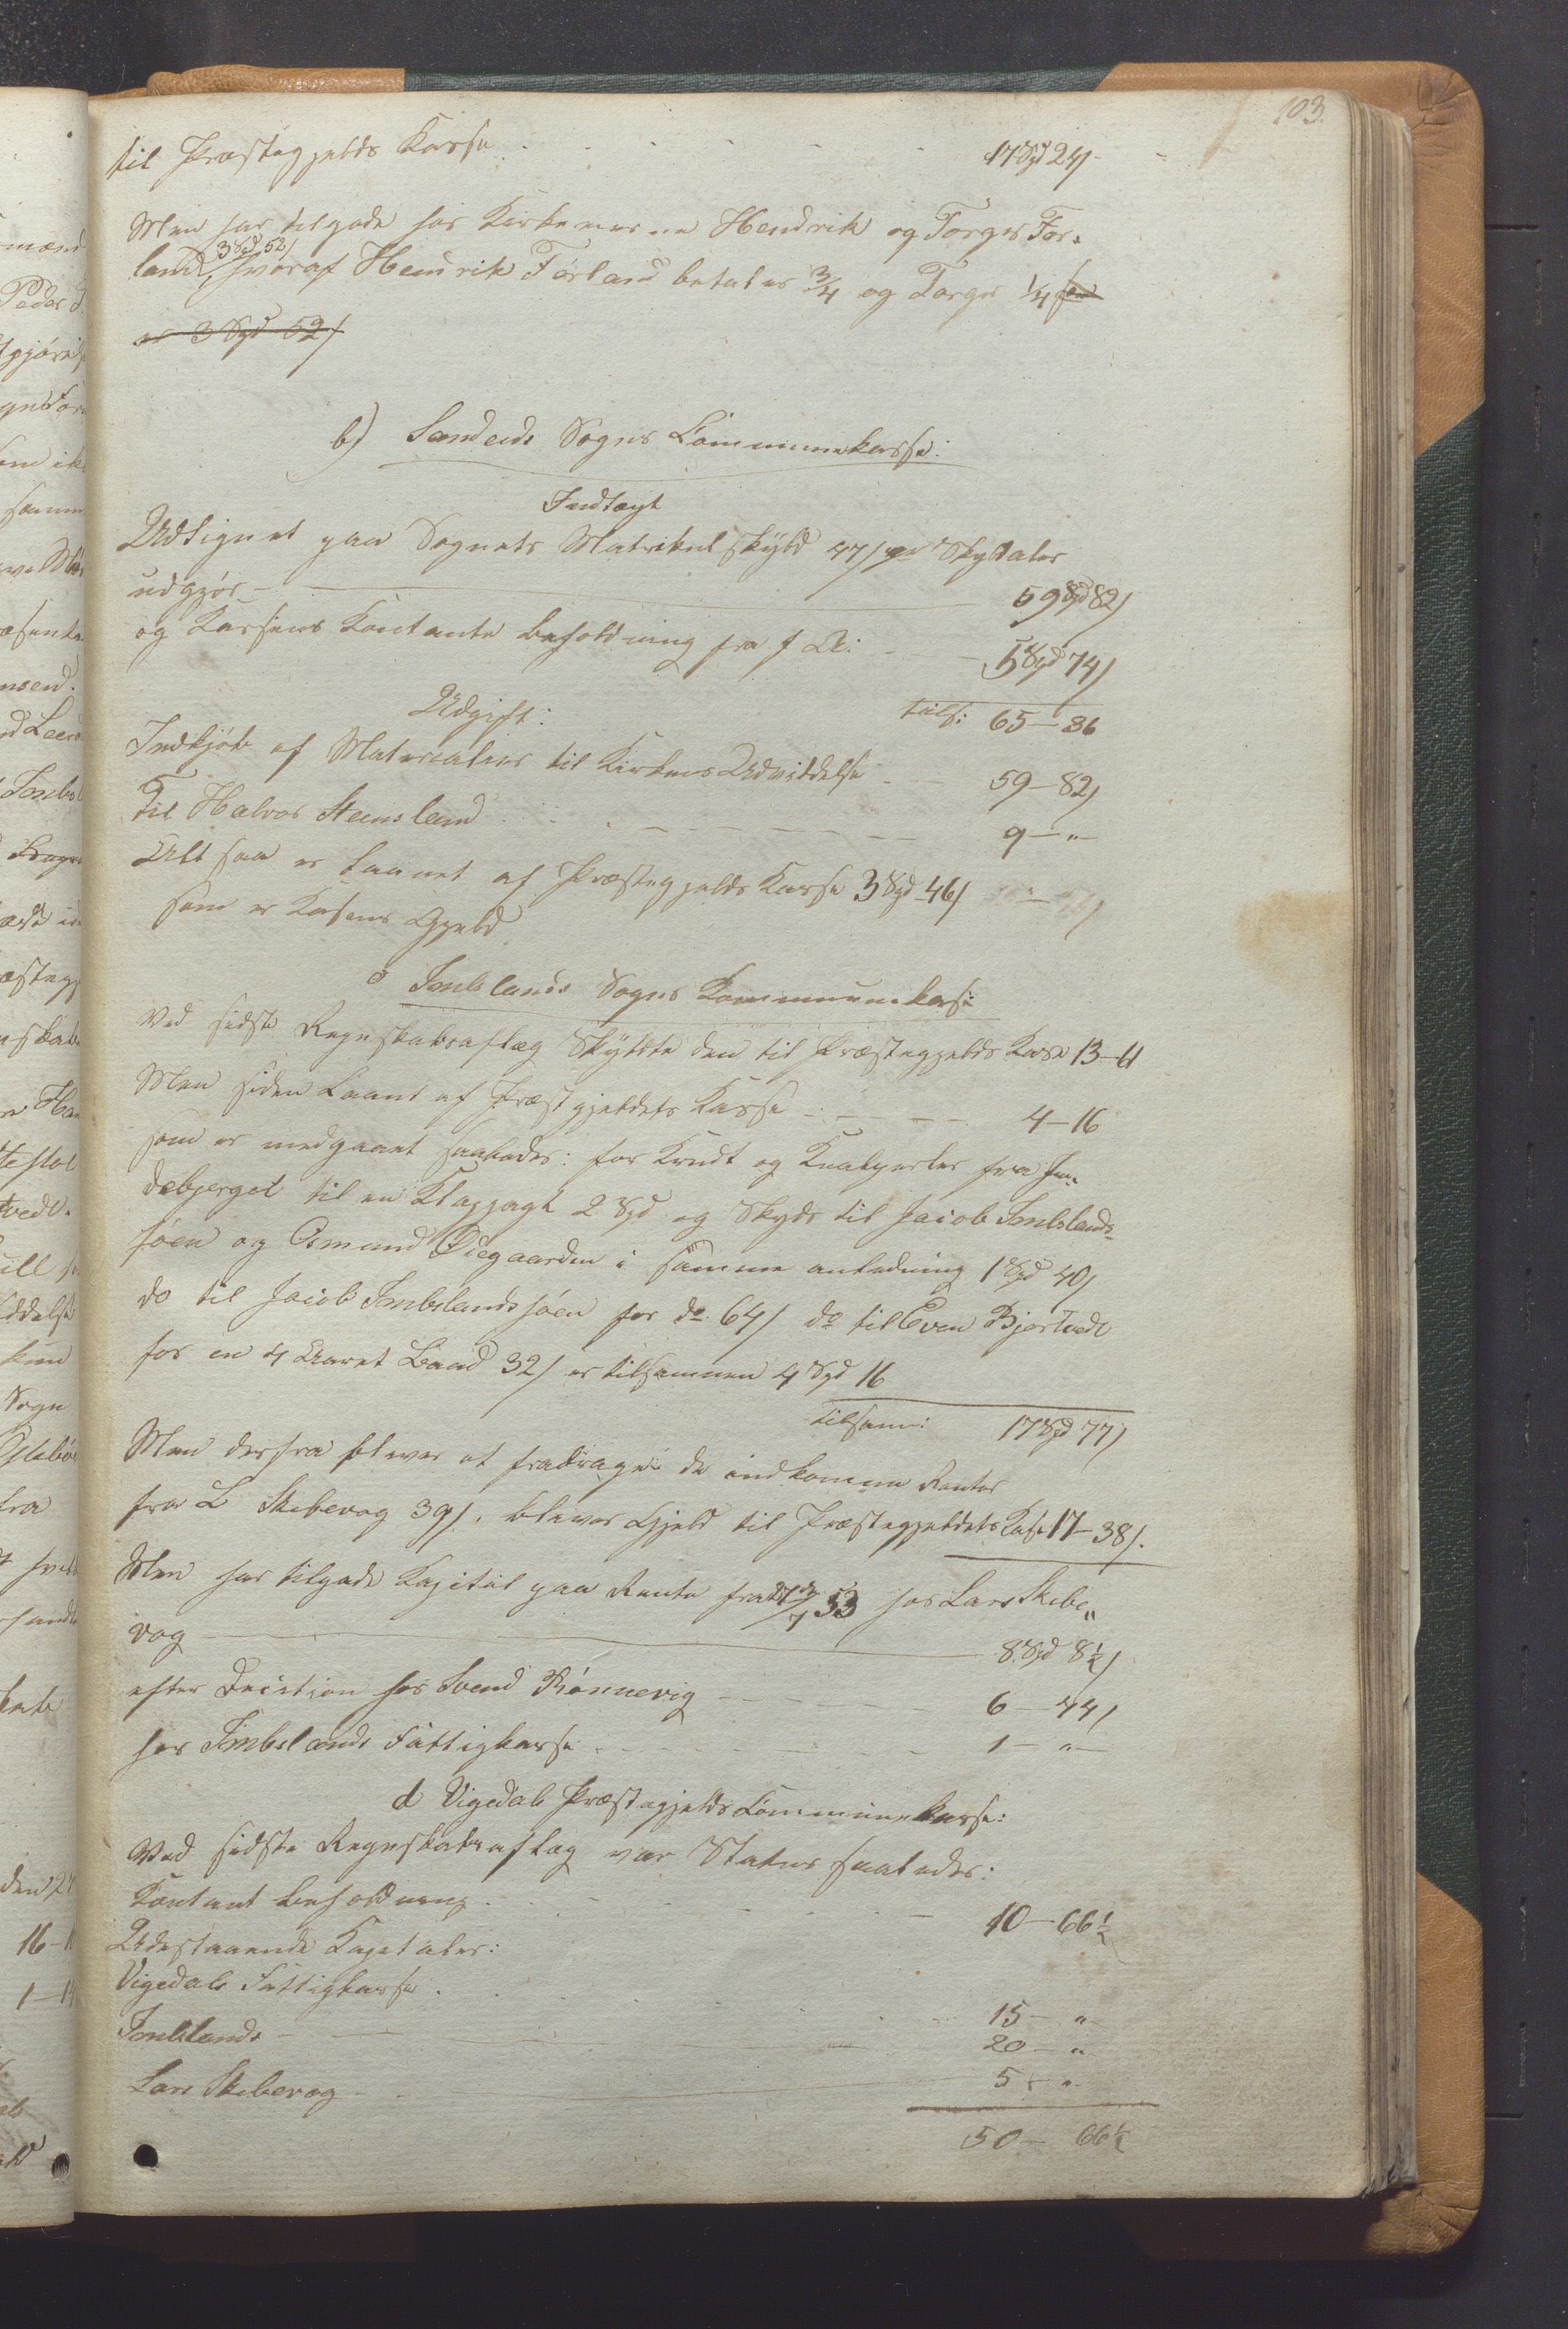 103.
til Præstegjelds Kasse . . . . . . 17 Spd 24 s
Men har tilgode hos Kirkeverne Hendrik og Torger Før-
land, 3 Spd 52 s hvoraf Hendrik Førland betaler 3/4 og Torger 1/4
er 3 Spd 52 s
b) Sandeids Sogns Communekasse:
Indtægt
Udlignet paa Sognets Matrikulskyld 47 s pr Skydaler
udgjør — 59 Spd 82 s
og Kassens Kontante beholdning fra f A: — 5 Spd 74 s
Udgift: tils: 65 — 36
Indkjøb af Materialier til Kirkens Udviddelse — 59 — 82 s
Til Halvor Steensland — 9 — "
Alt saa er laanet af Præstegjelds Kasse 3 Spd 46 s
som er Kasens Gjeld
c Imslands Sogns Kommunekas:
Ved sidste Regnskabsaflæg Skyldte den til Præstegjelds Kasse 13 — 61
Men siden Laant af Præstgjeldets Kasse — 4 — 16
som er medgaaet saaledes: for Krudt og Knalperler fra
debjerget til en Klapjagt 2 Spd og Skyds til Jacob Imslands-
søen og Osmund Ødegaarden i samme anledning 1 Spd 40 s
do til Jacob Imslandssøen for do 64 s do til Even Bjortvedt
for en 4 Aaret Baad 32 s er tilsammen 4 Spd 16
tilsam: 17 Spd 77 s
Men derfra bliver at fradrage de indkomne Renter
fra L Skibevog 39 s. bliver Gjeld til Præstegjeldets Kasse 17 — 38 s.
Men har tilgode Kapital paa Rente fra 53 hos Lars Skibe„
vog — 8 Spd 8 1/2 s
efter Decision hos Svend Rønnevig — 6 — 44 s
hos Imslands Fattigkasse — 1 — "
d Vigedals Præstegjelds Communekasse:
Ved sidste Regnskabsaflæg var Status saaledes:
Contant beholdning — 10 — 66 1/2
Udestaaende Kapitaler:
Vigedals Fattigkasse . . . 15 — "
Imslands — 20 — "
Lars Skibevog — 5 — "
50 — 66 1/2